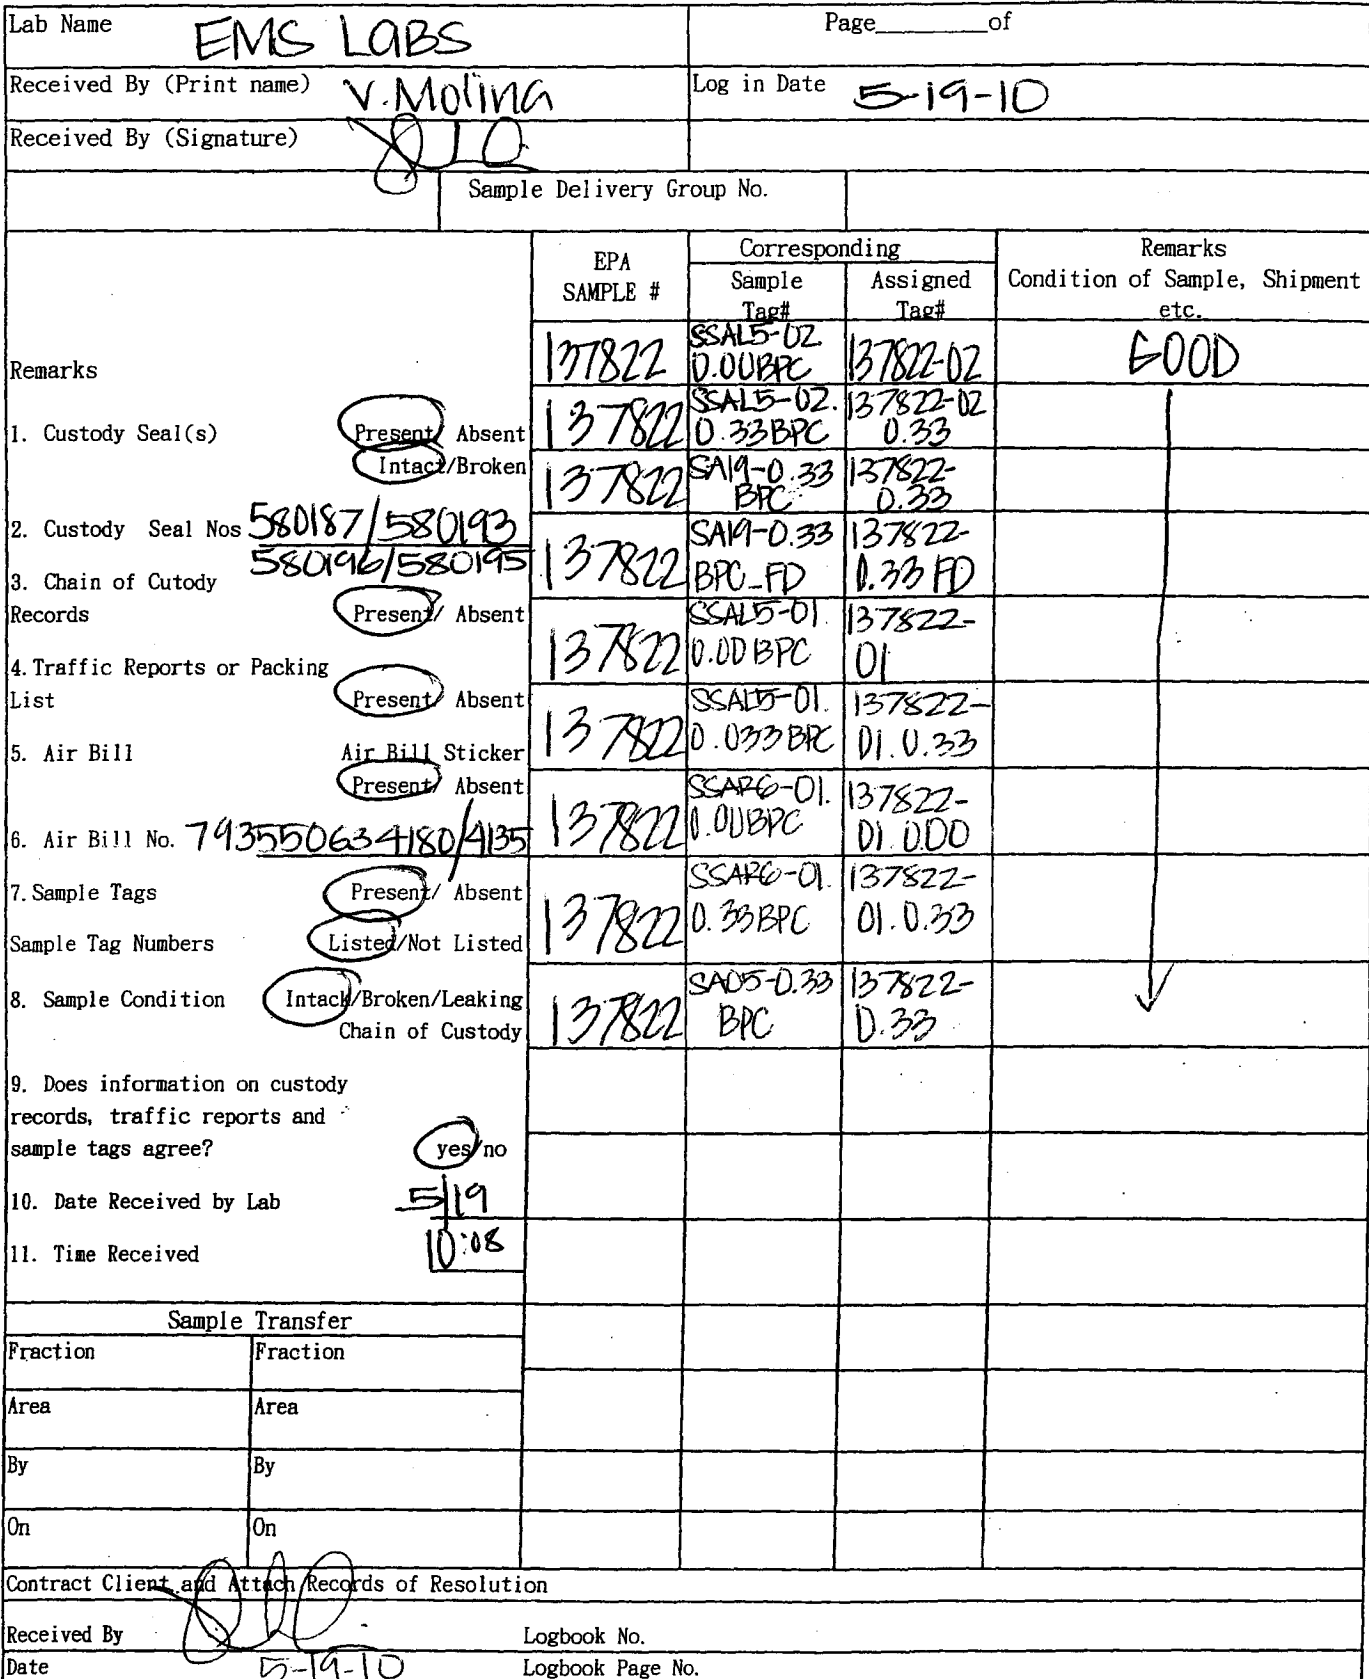 Lab Name EMS LABS Page________of
Received By (Print name) V. Molina Log in Date 5-19-10
Received By (Signature)
Sample Delivery Group No.
EPA SAMPLE # Corresponding Remarks
Sample Tag# Assigned Tag# Condition of Sample, Shipment etc.
Remarks
1. Custody Seal(s) Present/ Absent
Intact/Broken
2. Custody Seal Nos 580187/580193
580196/580195
3. Chain of Cutody
Records Present/ Absent
4. Traffic Reports or Packing
List Present/ Absent
5. Air Bill Air Bill Sticker
Present/ Absent
6. Air Bill No. 793550634180/4135
7. Sample Tags Present/ Absent
Sample Tag Numbers Listed/Not Listed
8. Sample Condition Intack/Broken/Leaking
Chain of Custody
9. Does information on custody
records, traffic reports and
sample tags agree? yes/no
10. Date Received by Lab 5/19
11. Time Received 10:08
137822 SSAL5-02. 0.00BPC 137822-02 GOOD
137822 SSAL5-02. 0.33BPC 137822-02 0.33
137822 SA19-0.33 BPC 137822- 0.33
137822 SA19-0.33 BPC_FD 137822- 0.33 FD
137822 SSAL5-01. 0.00 BPC 137822- 01
137822 SSAL5-01. 0.033 BPC 137822- 01.0.33
137822 SSAR6-01. 0.00BPC 137822- 01.0.00
137822 SSAR6-01. 0.33BPC 137822- 01.0.33
137822 SA05-0.33 BPC 137822- 0.33
Sample Transfer
Fraction Fraction
Area Area
By By
On On
Contract Client and Attach Records of Resolution
Received By Logbook No.
Date 5-19-10 Logbook Page No.